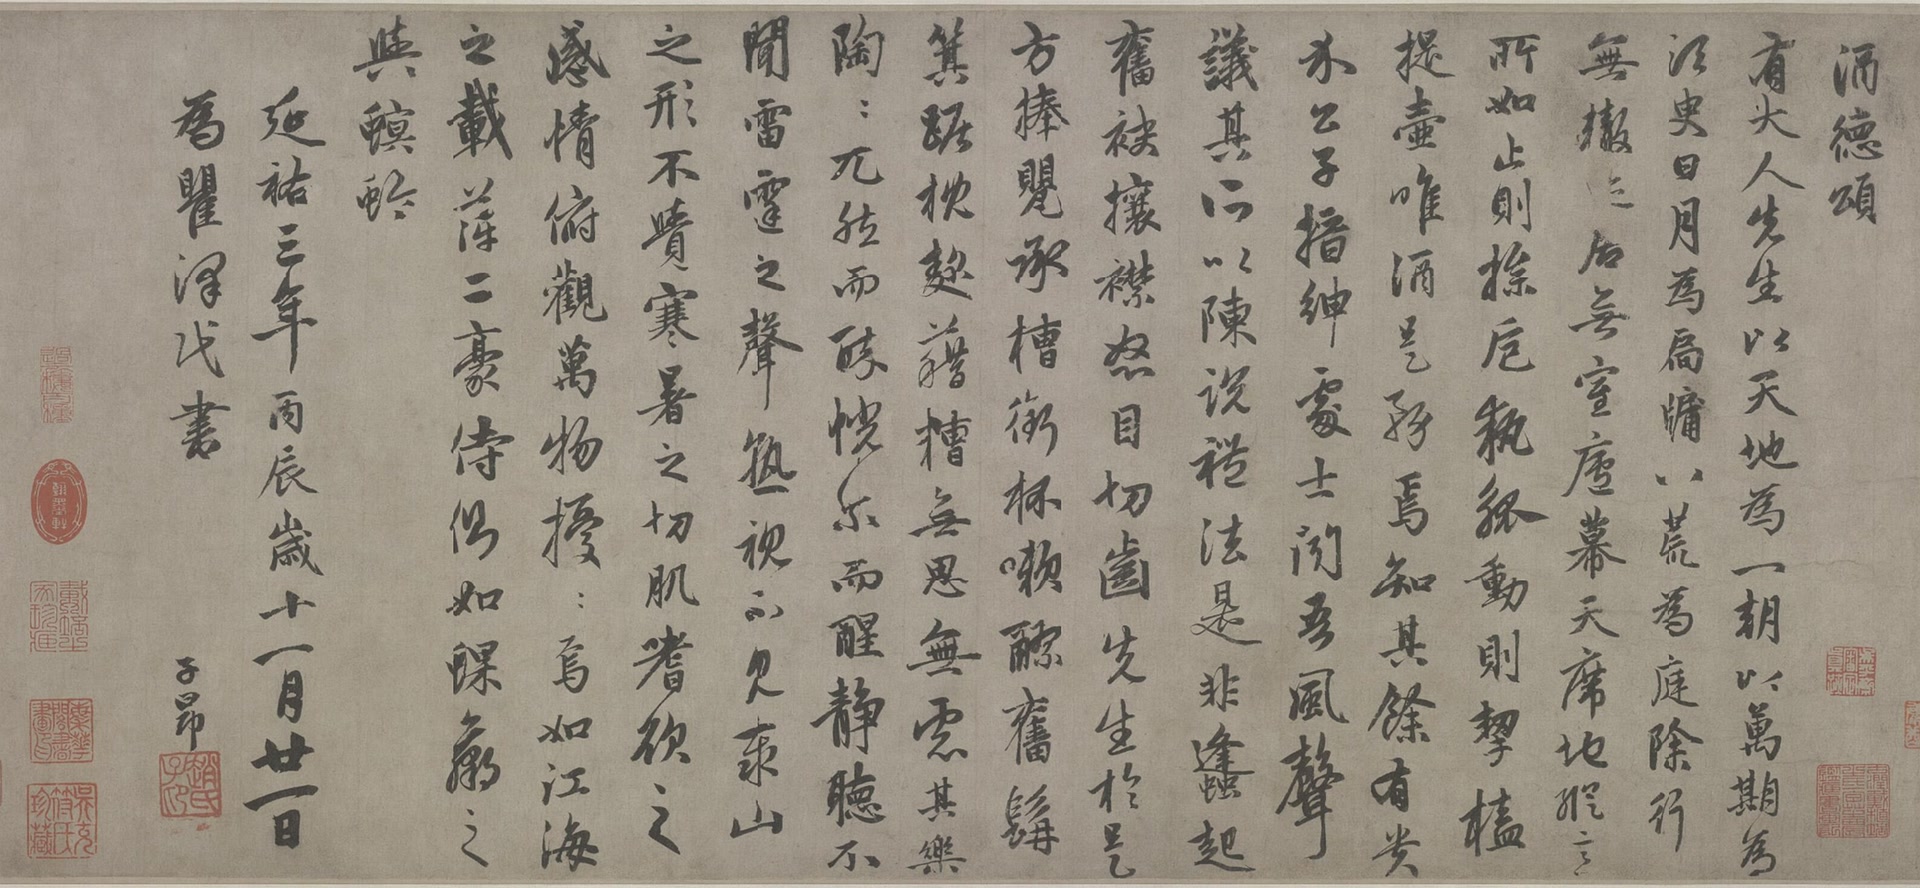 酒德頌
有大人先生以天地為一朝以萬期為
須臾日月為扃牖八荒為庭除行
無轍迹居無室廬幕天席地縱意
所如止則操卮執觚動則挈榼
提壺唯酒是務焉知其餘有貴
介公子搢紳處士聞吾風聲
議其所以陳說禮法是非蠭起
奮袂攘襟怒目切齒先生於是
方捧甖承槽銜杯嗽醪奮髯
箕踞枕麴藉糟無思無慮其樂
陶:兀然而醉恍尔而醒静聽不
聞雷霆之聲熟視不見泰山
之形不寒暑之切肌嗜欲之
感情俯觀萬物擾:焉如江海
之載萍二豪侍側如蜾蠃之
與螟蛉
延祐三年丙辰歲十一月廿一日
為瞿澤民書
子昂
趙氏子昂